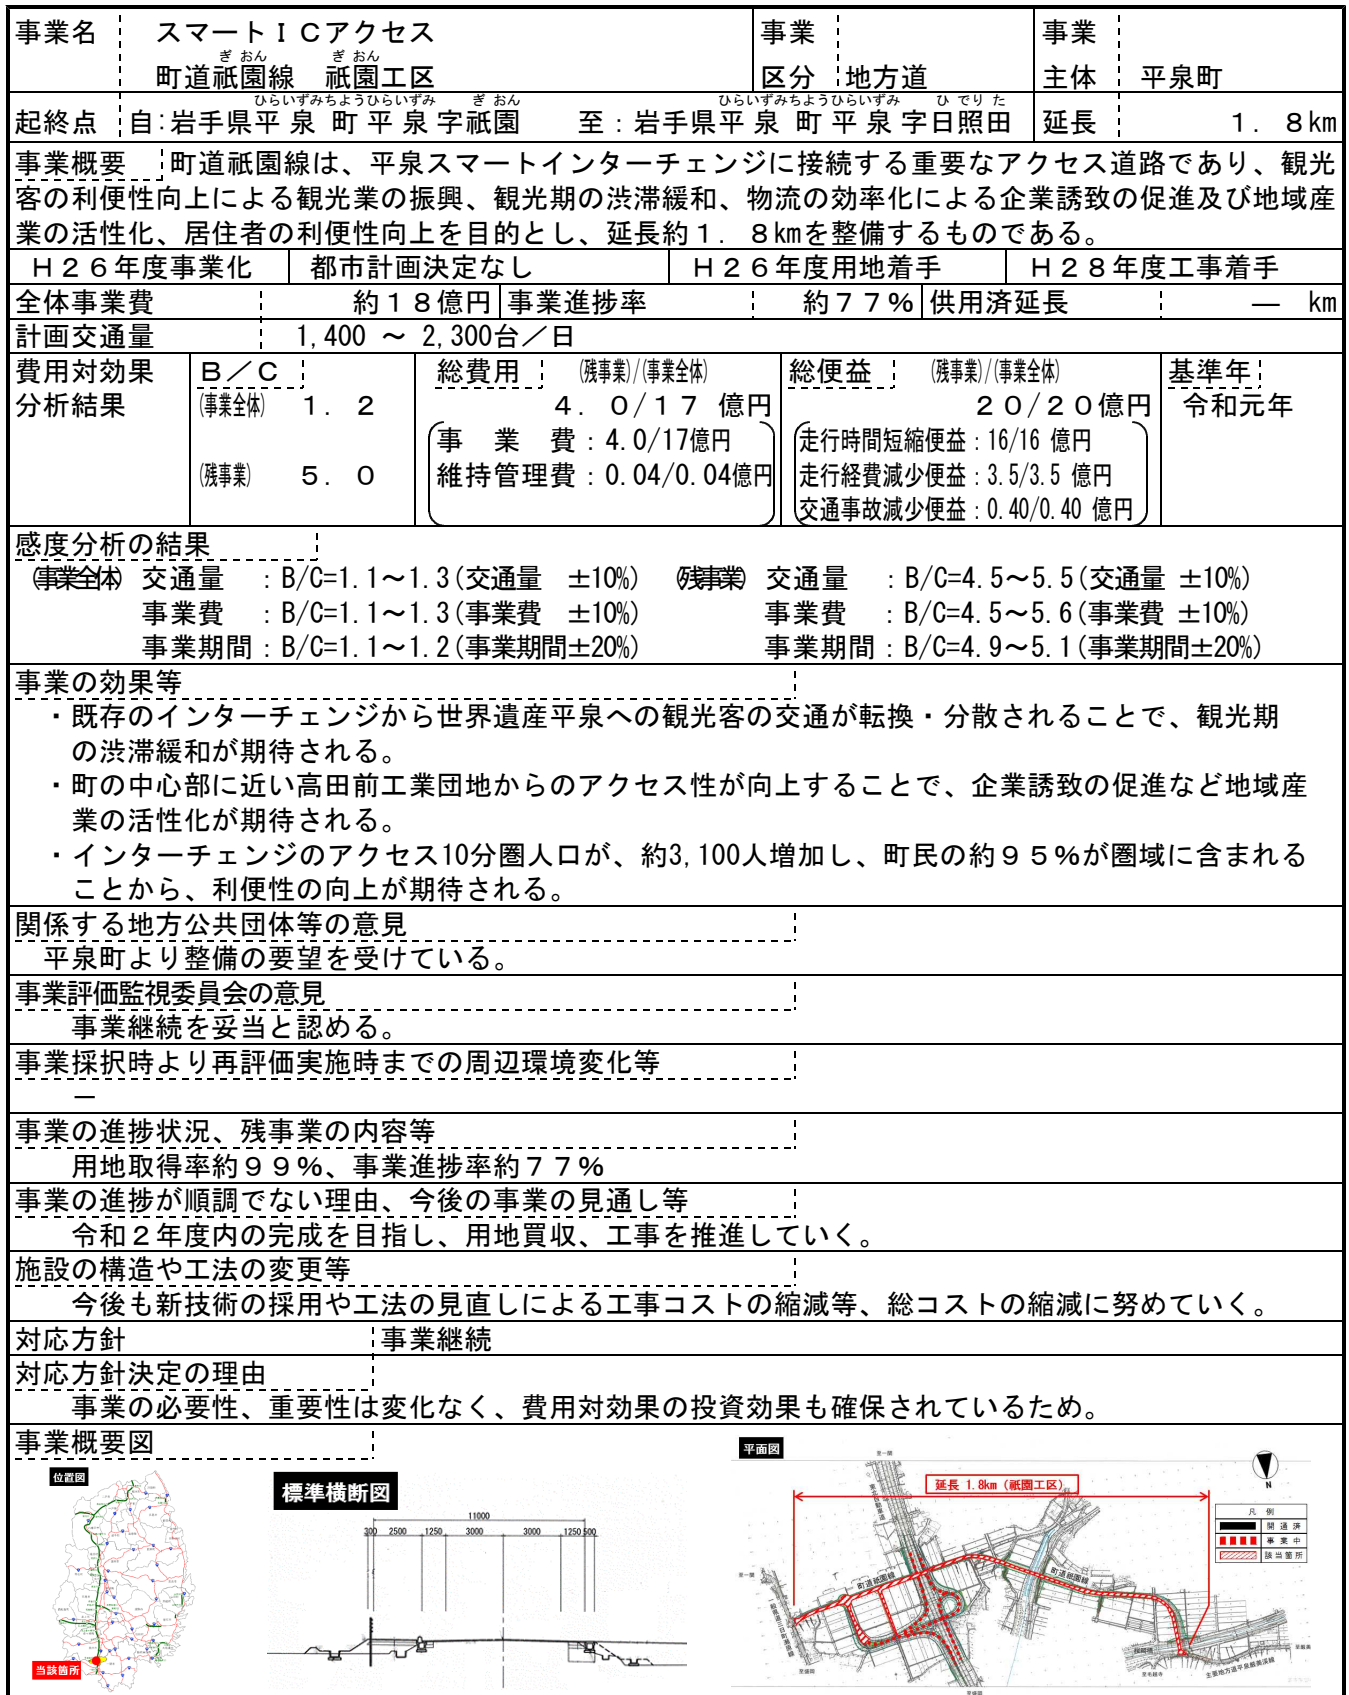 事業名 スマートＩＣアクセス 事業 事業
ぎ おん ぎ おん
町道祇園線 祇園工区 区分 地方道 主体 平泉町
ひらいずみちようひらいずみ ぎ おん ひらいずみちようひらいずみ ひ でり た
起終点 自：岩手県平泉町平泉字祇園 至：岩手県平泉町平泉字日照田 延長 １．８km
事業概要 町道祇園線は、平泉スマートインターチェンジに接続する重要なアクセス道路であり、観光
客の利便性向上による観光業の振興、観光期の渋滞緩和、物流の効率化による企業誘致の促進及び地域産
業の活性化、居住者の利便性向上を目的とし、延長約１．８㎞を整備するものである。
Ｈ２６年度事業化 都市計画決定なし Ｈ２６年度用地着手 Ｈ２８年度工事着手
全体事業費 約１８億円 事業進捗率 約７７％ 供用済延長 ― km
計画交通量 1,400 ～ 2,300台／日
費用対効果 Ｂ／Ｃ 総費用 (残事業)/(事業全体) 総便益 (残事業)/(事業全体) 基準年
分析結果 (事業全体) １．２ ４．０/１７ 億円 ２０/２０億円 令和元年
事 業 費：4.0/17億円 走行時間短縮便益：16/16 億円
(残事業) ５．０ 維持管理費：0.04/0.04億円 走行経費減少便益：3.5/3.5 億円
交通事故減少便益：0.40/0.40 億円
感度分析の結果
(事業全体) 交通量 ：B/C=1.1～1.3(交通量 ±10%) (残事業) 交通量 ：B/C=4.5～5.5(交通量 ±10%)
事業費 ：B/C=1.1～1.3(事業費 ±10%) 事業費 ：B/C=4.5～5.6(事業費 ±10%)
事業期間：B/C=1.1～1.2(事業期間±20%) 事業期間：B/C=4.9～5.1(事業期間±20%)
事業の効果等
・既存のインターチェンジから世界遺産平泉への観光客の交通が転換・分散されることで、観光期
の渋滞緩和が期待される。
・町の中心部に近い高田前工業団地からのアクセス性が向上することで、企業誘致の促進など地域産
業の活性化が期待される。
・インターチェンジのアクセス10分圏人口が、約3,100人増加し、町民の約９５％が圏域に含まれる
ことから、利便性の向上が期待される。
関係する地方公共団体等の意見
平泉町より整備の要望を受けている。
事業評価監視委員会の意見
事業継続を妥当と認める。
事業採択時より再評価実施時までの周辺環境変化等
－
事業の進捗状況、残事業の内容等
用地取得率約９９％、事業進捗率約７７％
事業の進捗が順調でない理由、今後の事業の見通し等
令和２年度内の完成を目指し、用地買収、工事を推進していく。
施設の構造や工法の変更等
今後も新技術の採用や工法の見直しによる工事コストの縮減等、総コストの縮減に努めていく。
対応方針 事業継続
対応方針決定の理由
事業の必要性、重要性は変化なく、費用対効果の投資効果も確保されているため。
事業概要図
位置図
当該箇所
標準横断図
11000
300 2500 1250 3000 3000 1250 500
平面図
至一関
延長 1.8km（祇園工区）
N
凡 例
開通済
事業中
該当箇所
東北自動車道
至一関
町道祇園線
町道祇園線
至盛岡
至盛岡
至毛越寺
至厳美
主要地方道平泉厳美渓線